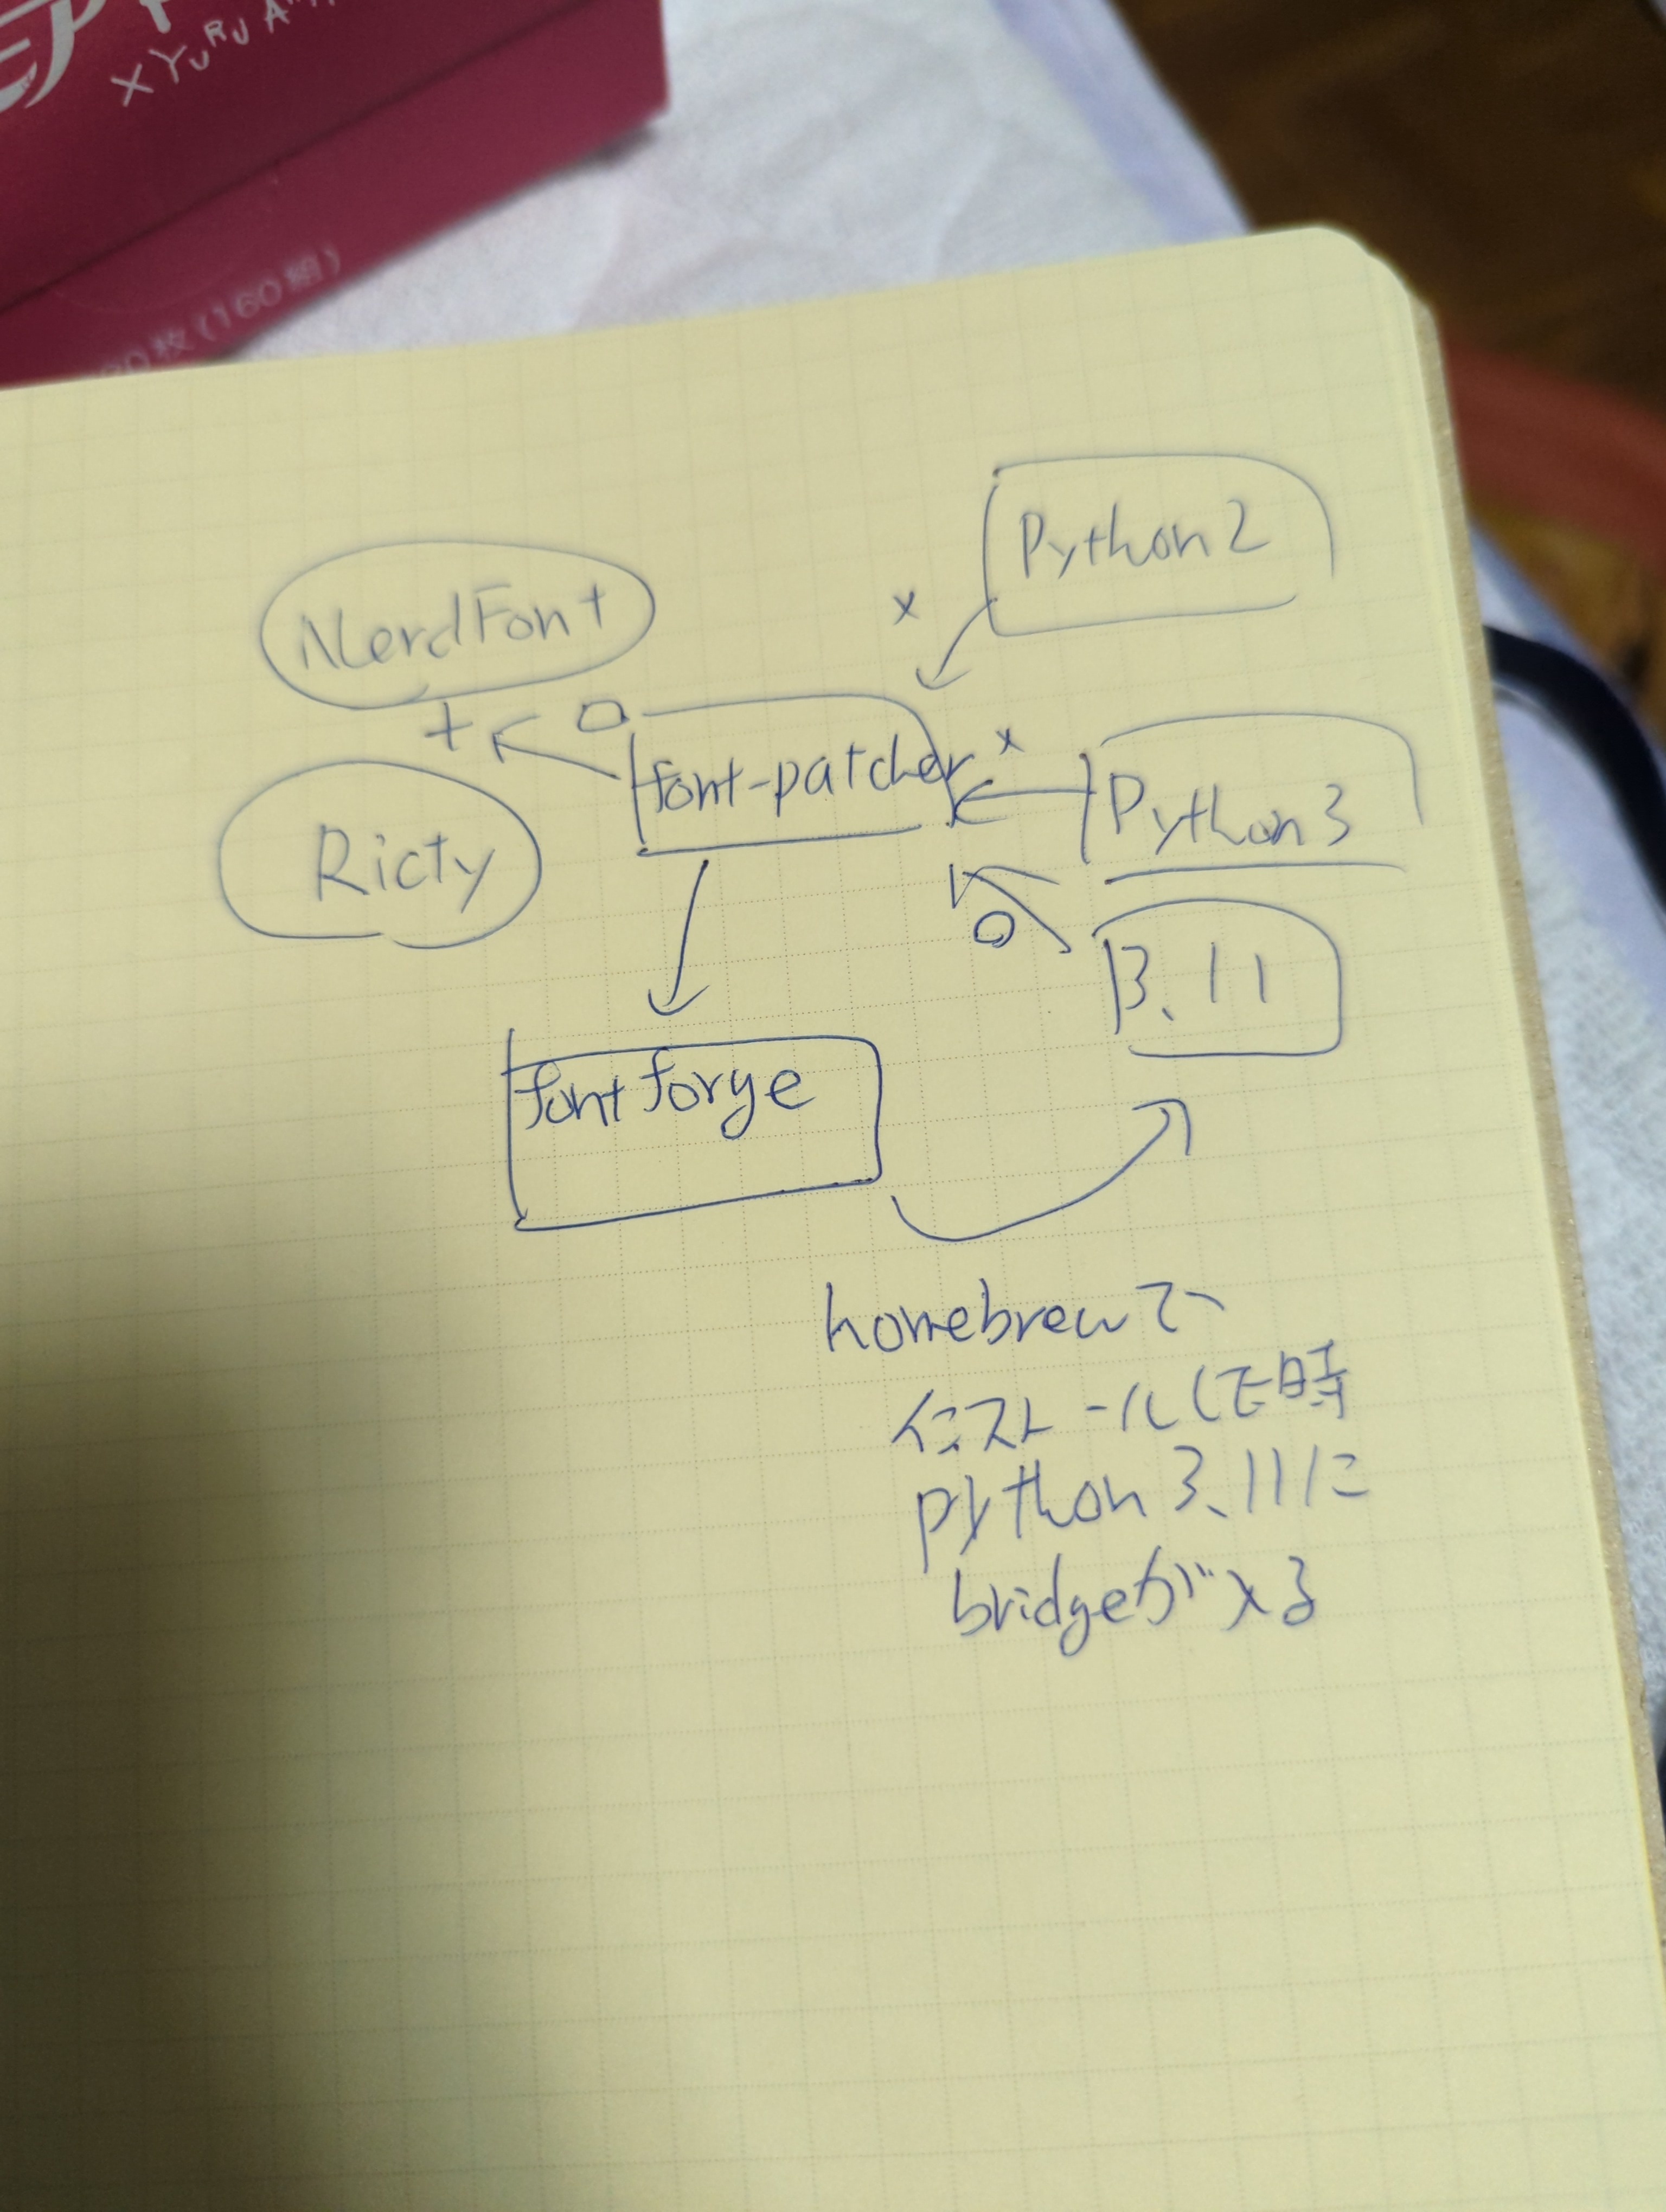 X YURU A
(160組)
Python2
NerdFont
×
+
○
font-patcher
×
Python3
Ricty
○
3.11
fontforge
homebrewで
インストールした時
python3.11に
bridgeが入る